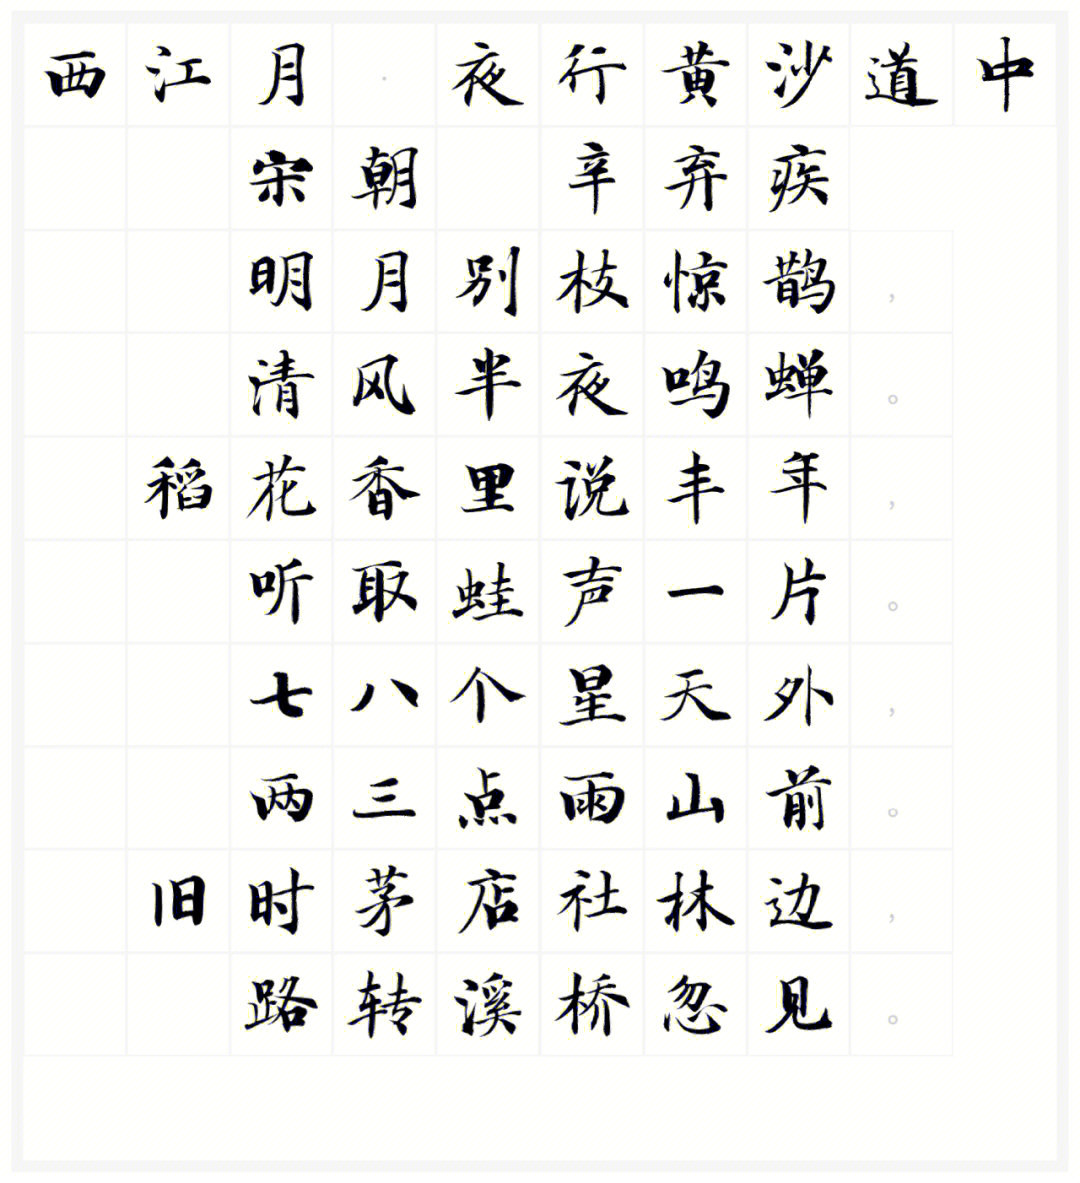 西江月·夜行黄沙道中
宋朝 辛弃疾
明月别枝惊鹊，
清风半夜鸣蝉。
稻花香里说丰年，
听取蛙声一片。
七八个星天外，
两三点雨山前。
旧时茅店社林边，
路转溪桥忽见。